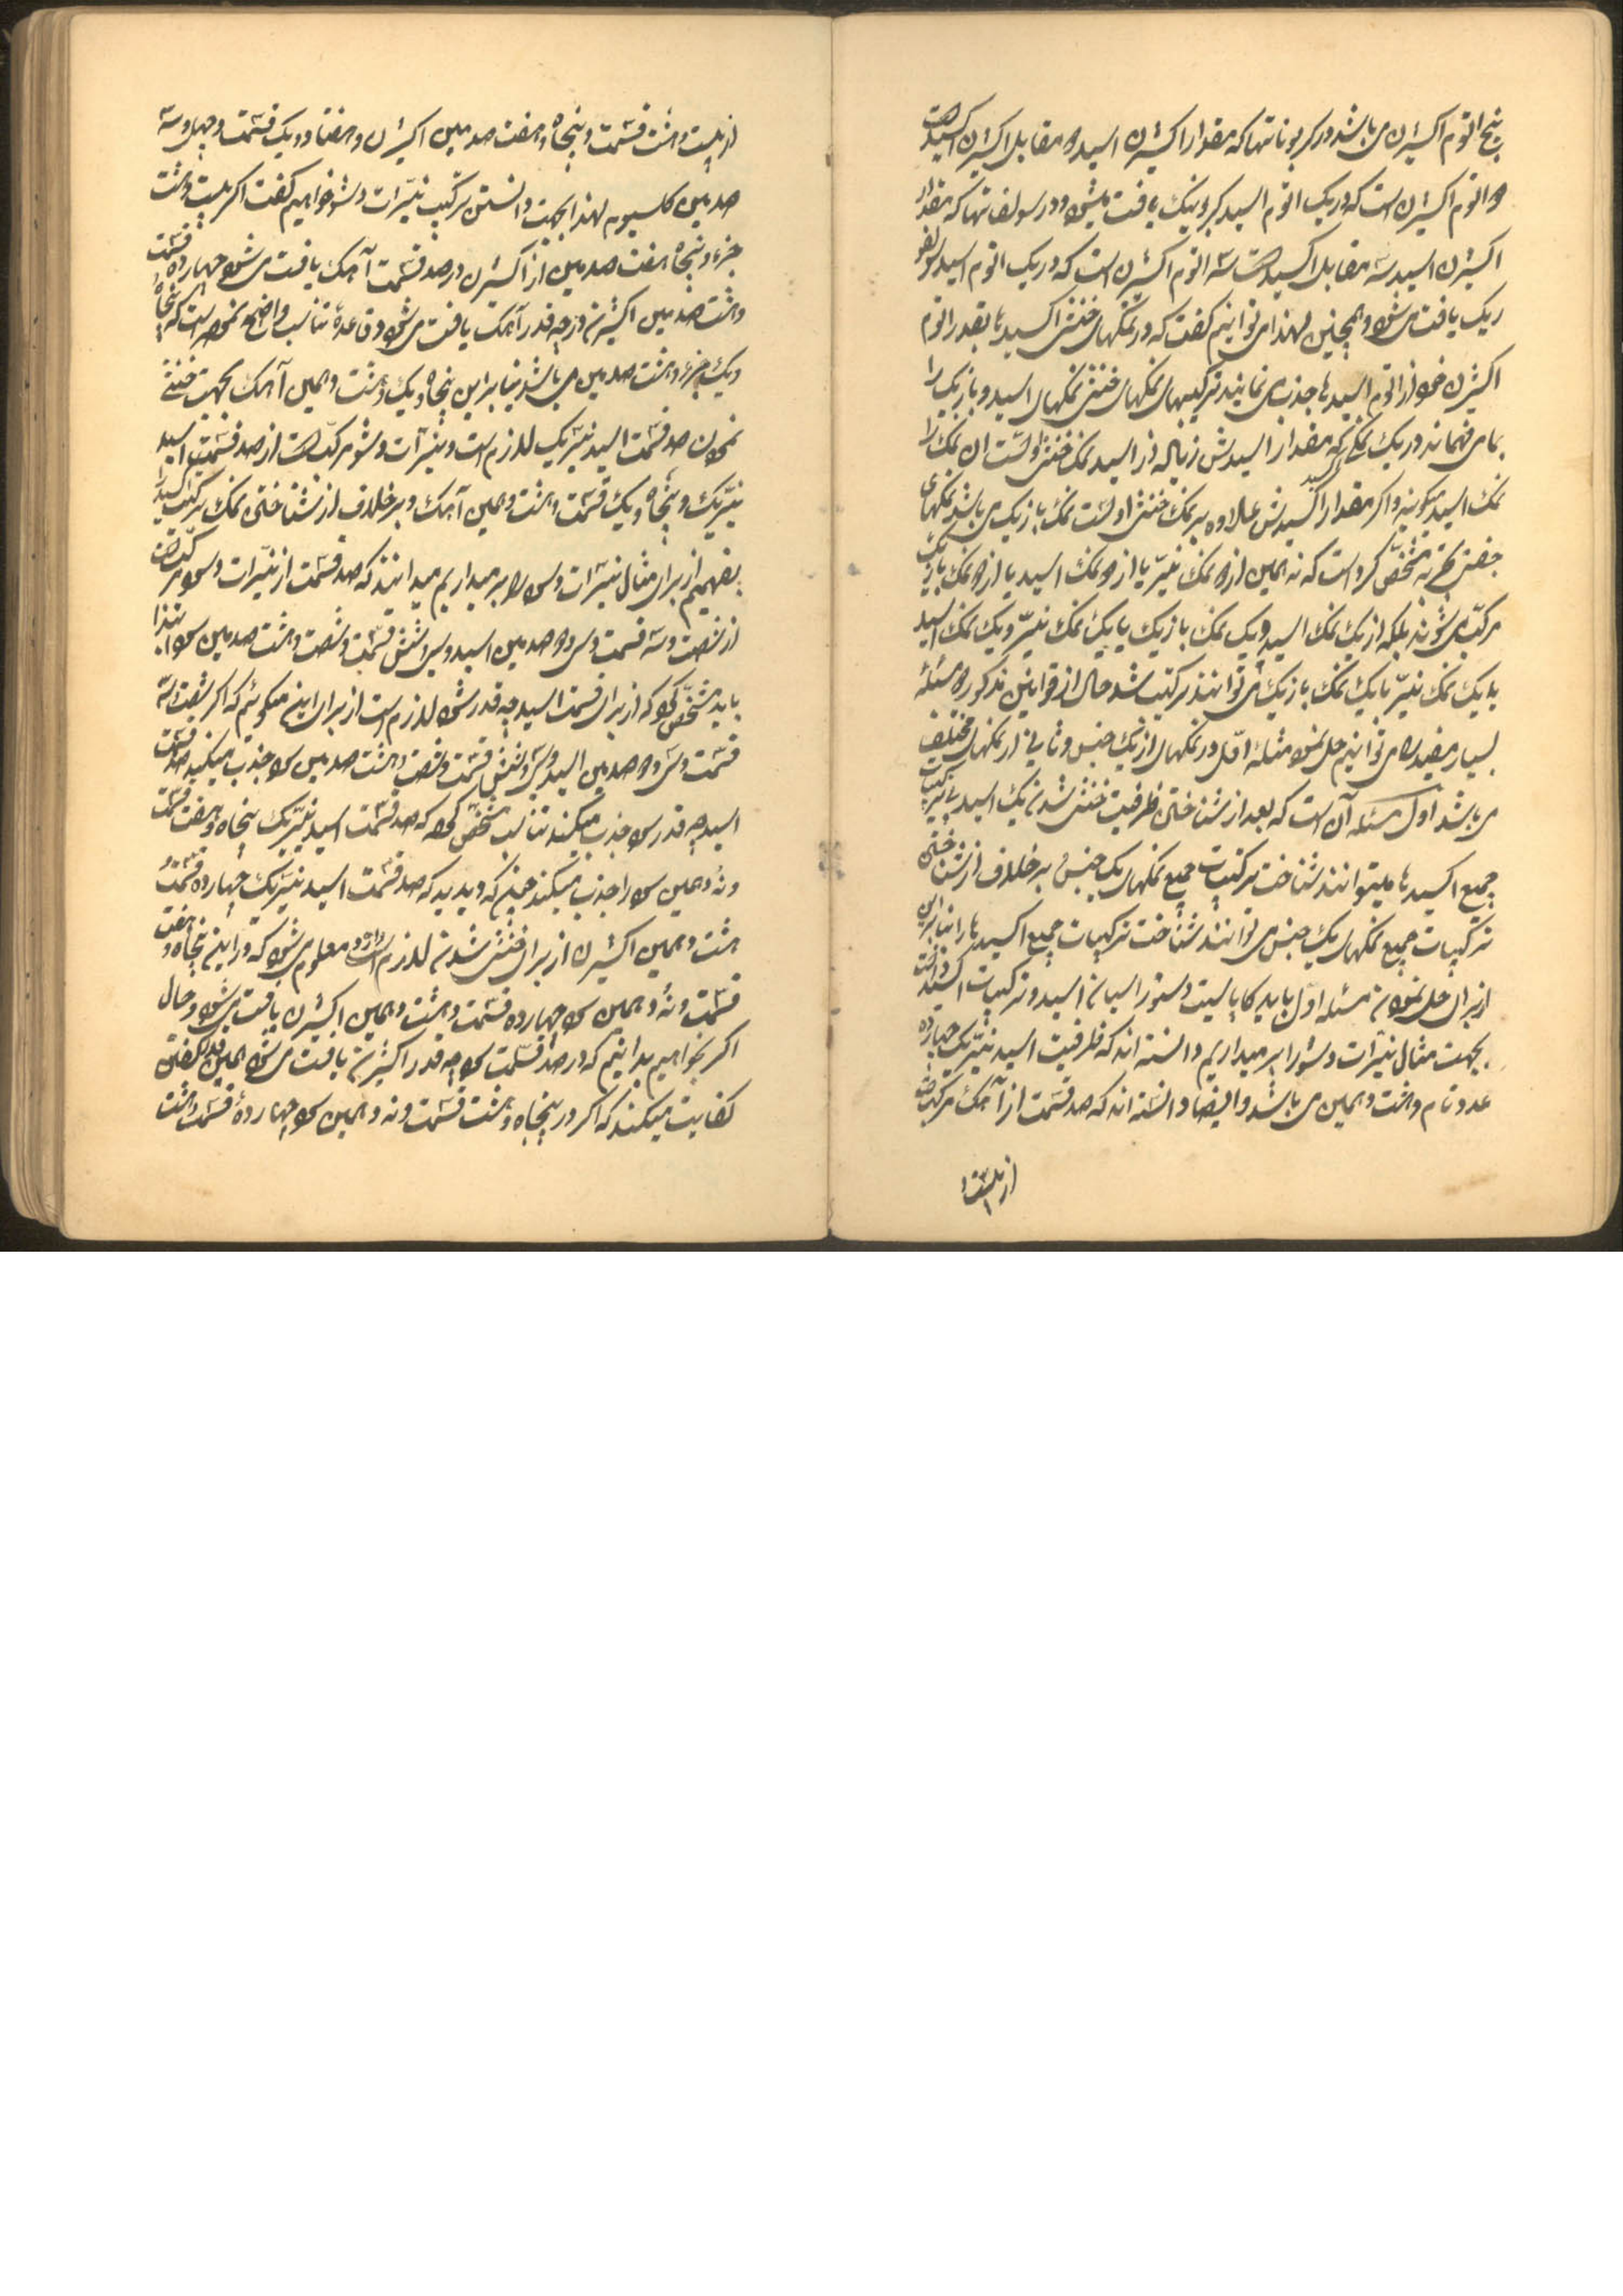 پنج اتوم اکسیژن می باشد در کربوناتها که مقدار اکسیژن اسید دو مقابل اکسیژن اکسید است
دو اتوم اکسیژن است که در یک اتوم اسید کربونیک یافت میشود و در سولفاتها که مقدار
اکسیژن اسید سه مقابل اکسید است سه اتوم اکسیژن است که در یک اتوم اسید سولفو
ریک یافت می شود و همچنین لهذا می توانیم گفت که در نمکهای خنثی اکسیدها بقدر اتوم
اکسیژن خود از اتوم اسیدها جذب می نمایند ترکیبهای نمکهای خنثی نمکهای اسید و بازیک را
بما می فهماند در یک نمکی که مقدار اسیدش زیاله از اسید نمک خنثی اوست ان نمک را
نمک اسید میگویند و اگر مقدار اکسیدش علاوه بر نمک خنثی اوست نمک بازیک می باشد نمکهای
جفتی تجربه مشخص کرده است که نه همین از دو نمک نیتر یا از دو نمک اسید یا از دو نمک بازیک
مرکب می شوند بلکه از یک نمک اسید و یک نمک بازیک یا یک نمک نیتر و یک نمک اسید
یا یک نمک نیتر با یک نمک بازیک می توانند مرکب شد حال از قوانین مذکوره دو مسئله
بسیار مفید را می توانیم حل نمود مثله اول در نمکهای از یک جنس و ثانی از نمکهای مختلف
می باشد اول مسئله آن است که بعد از شناختن ظرفیت خنثی شدن یک اسید بی ترکیب
جمیع اکسیدها میتوانند شناخت ترکیبات جمیع نمکهای یک جنس و بر خلاف از شناختن
ترکیبات جمیع نمکهای یک جنس می توانند شناخت ترکیبات جمیع اکسیدها را بنابراین
از برای حل نمودن مسئله اول باید کاپاسیت دستوراسیان اسید و ترکیبات اکسید را دانست
بجهت مثال نیترات دشو را بر میداریم دانسته اند که ظرفیت اسید نیتریک چهارده
عدد تام و هشت دهمین می باشد و ایضا دانسته اند که صد قسمت از آهک مرکب است
از بیست و
از بیست و هشت قسمت و پنجاه و هفت صدمین اکسیژن و هفتاد و یک قسمت و چهل و سه
صدمین کلسیوم لهذا بجهت دانستن ترکیب نیترات دشو خواهیم گفت اگر بیست و هشت
جزء و پنجاه و هفت صدمین از اکسیژن در صد قسمت آهک یافت می شود چهارده قسمت
و هشت صدمین اکسیژن در چه قدر آهک یافت می شود و قاعدهٔ تناسب واضح نموده است که پنجاه
و یک جزء و هشت صدمین می باشد بنابراین پنجاه و یک و هشت دهمین آهک بجهت خنثی
نمودن صد قسمت اسید نیتریک لازم است و نیترات دشو مرکب است از صد قسمت اسید
نیتریک و پنجاه و یک قسمت و هشت دهمین آهک و بر خلاف از شناختن نمک ترکیب اکسید را
بفهمیم از برای مثال نیترات دسود را بر میداریم میدانند که صد قسمت از نیترات دسود مرکب است
از شصت و سه قسمت و سی و دو صدمین اسید و سی و شش قسمت و شصت و هشت صدمین سود لهذا
باید مشخص کرد که از برای صد قسمت اسید چه قدر سود لازم است از برای این میگوئیم که اگر شصت و سه
قسمت و سی و دو صدمین اسید و سی و شش قسمت و شصت و هشت صدمین سود جذب میکنند صد قسمت
اسید چه قدر سود جذب میکند تناسب مشخص کرده که صد قسمت اسید نیتریک پنجاه و هفت قسمت
و نه دهمین سود را جذب میکند چنانکه دیدید که صد قسمت اسید نیتریک چهارده قسمت
هشت دهمین اکسیژن از برای خنثی شدن لازم دارد معلوم می شود که در این پنجاه و هفت
قسمت و نه دهمین سود چهارده قسمت و هشت دهمین اکسیژن یافت می شود و حال
اگر بخواهیم بدانیم که در صد قسمت سود چه قدر اکسیژن یافت می شود همین قدر گفتن
کفایت میکند که اگر در پنجاه و هشت قسمت و نه دهمین سود چهارده قسمت و هشت